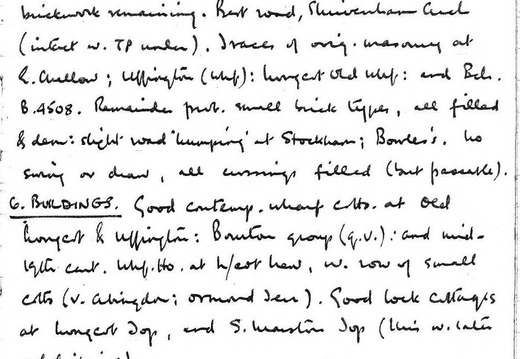 brickwork remaining. Best road, Shrivenham Arch
(intact w. TP under). Traces of orig. masonry at
E. Challow; Uffington (Whf): Longcot Old Whf: and
B.4508. Remainder prob. small brick types, all filled
& dem: slight road 'humping' at Stockham; Bowles's. No
swing or draw, all crossings filled (but passable).
6. BUILDINGS. Good contemp. wharf cotts. at Old
Longcot & Uffington: Bourton group (q.v.): and mid-
19th cent. Whf. Ho. at L/cot New, w. row of small
cotts (v. Abingdon; Ormond Terr). Good lock cottages
at Longcot Top, and S. Marston Top (this w. later